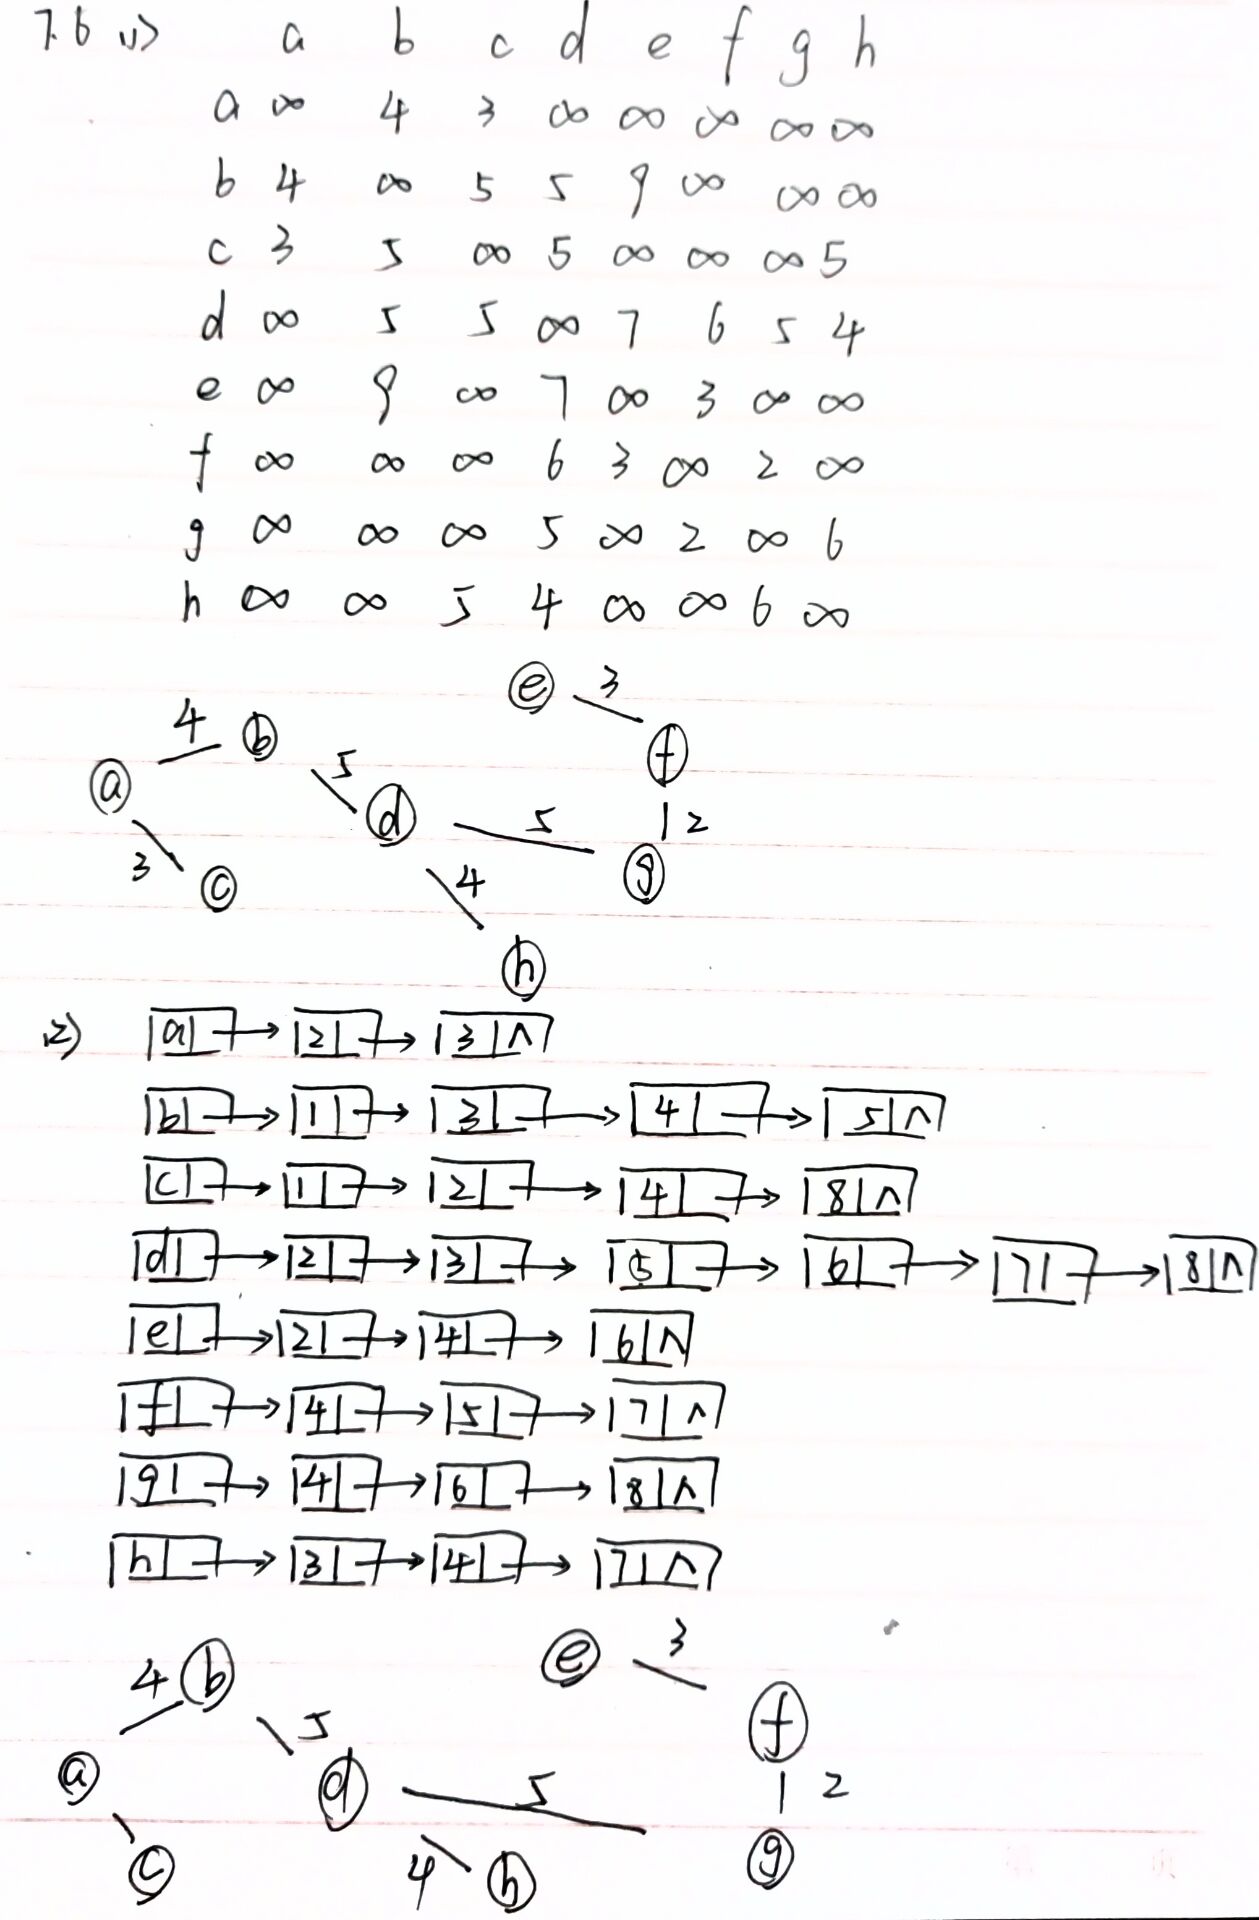 7.6 (1) a b c d e f g h
a ∞ 4 3 ∞ ∞ ∞ ∞ ∞
b 4 ∞ 5 5 9 ∞ ∞ ∞
c 3 5 ∞ 5 ∞ ∞ ∞ 5
d ∞ 5 5 ∞ 7 6 5 4
e ∞ 9 ∞ 7 ∞ 3 ∞ ∞
f ∞ ∞ ∞ 6 3 ∞ 2 ∞
g ∞ ∞ ∞ 5 ∞ 2 ∞ 6
h ∞ ∞ 5 4 ∞ ∞ 6 ∞
e 3
4 b f
a 5 d 5 2
3 c 4 g
h
(2) a → 2 → 3 ∧
b → 1 → 3 → 4 → 5 ∧
c → 1 → 2 → 4 → 8 ∧
d → 2 → 3 → 5 → 6 → 7 → 8 ∧
e → 2 → 4 → 6 ∧
f → 4 → 5 → 7 ∧
g → 4 → 6 → 8 ∧
h → 3 → 4 → 7 ∧
4 b e 3
5 f
a d 5 2
c 4 h g